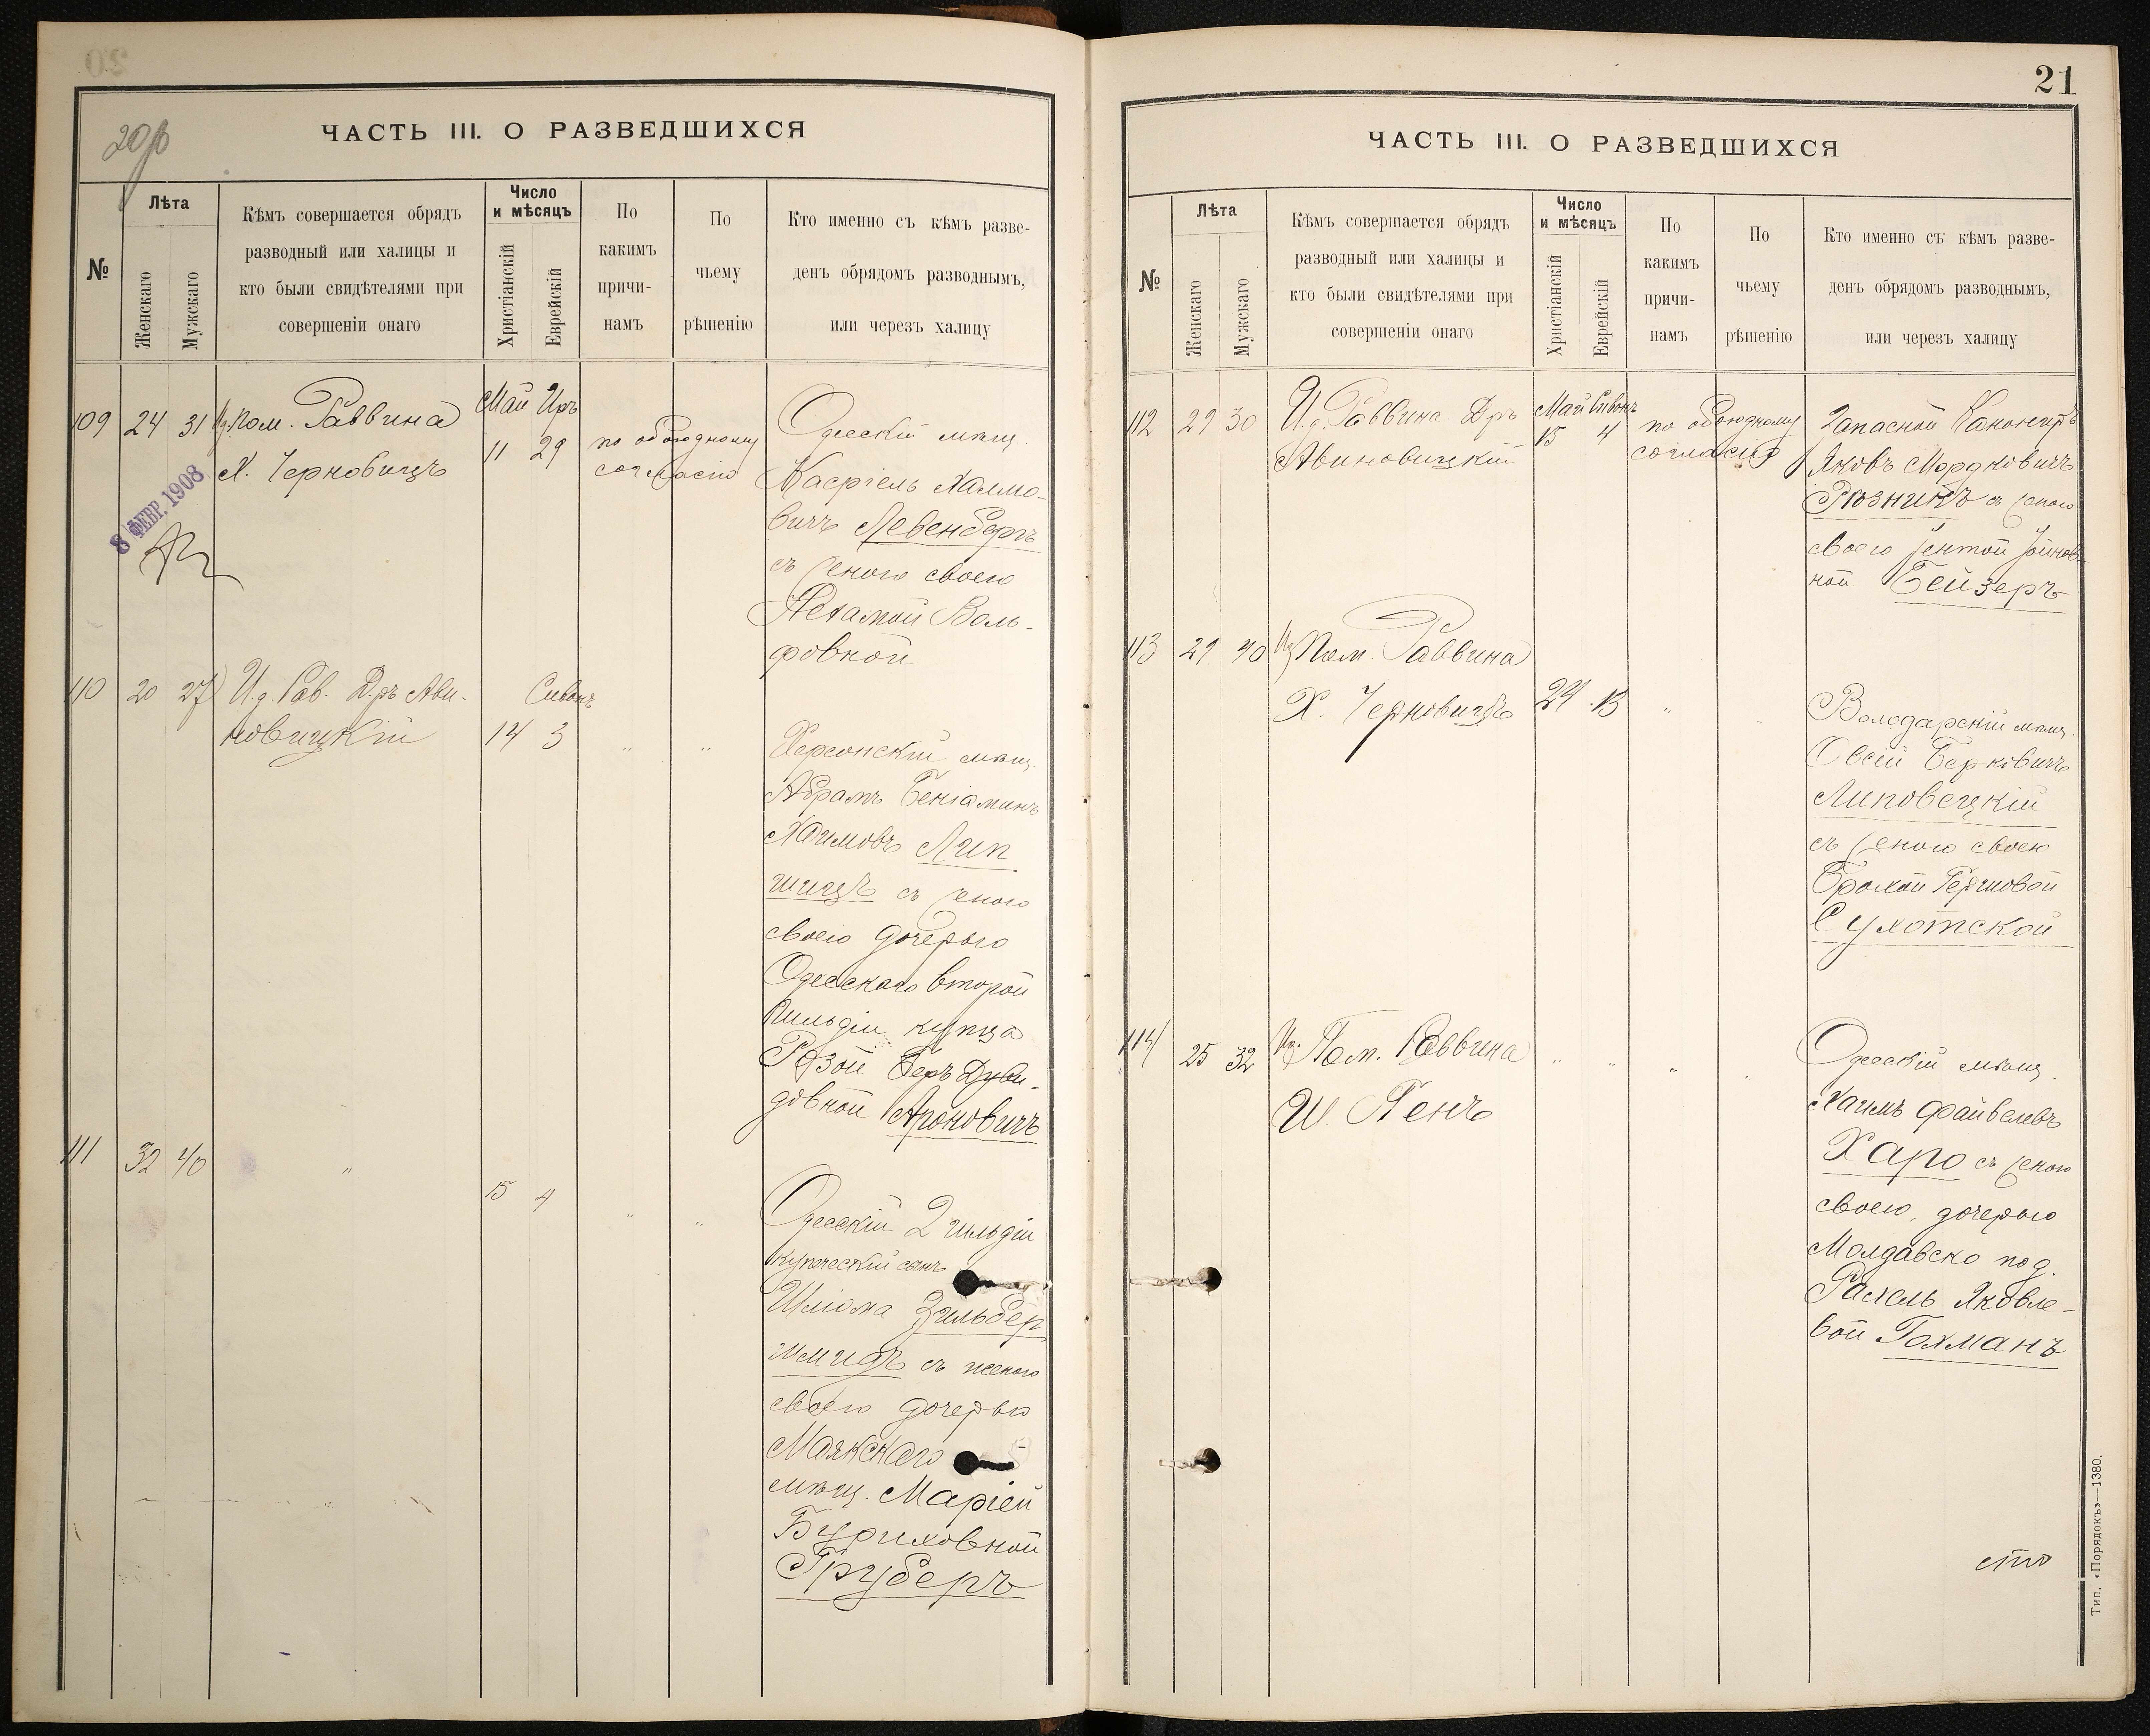 20об
ЧАСТЬ III. О РАЗВЕДШИХСЯ
№
Лѣта
Женскаго
Мужскаго
Кѣмъ совершается обрядъ
разводный или халицы и
кто были свидѣтелями при
совершеніи онаго
Число
и мѣсяцъ
Христіанскій
Еврейскій
По
какимъ
причи-
намъ
По
чьему
рѣшенію
Кто именно съ кѣмъ разве-
денъ обрядомъ разводнымъ,
или черезъ халицу
109 24 31
Пом. Раввина
Х. Черновицъ
Май Иръ
11 29
по обоюдному
согласію
Одесскій мѣщ.
Касріель Хаимо-
вичъ Левенбергъ
съ женою своею
Нехамой Воль-
фовной
8 ФЕВР. 1908
110 20 27
И.д. Рав. Д-ръ Ави-
новицкій
Сивонъ
14 3
" "
Херсонскій мѣщ.
Абрамъ Беніаминъ
Хаимовъ Лип
шицъ съ женою
своею дочерью
Одесскаго второй
гильдіи купца
Розой Беръ Дуви-
довной Ароновичъ
111 32 40
"
15 4
" "
Одесскій 2 гильдіи
купеческій сынъ
Шліома Зильбер
шмидъ съ женою
своею дочерью
Маякскаго
мѣщ. Маріей
Буриховной
Груберъ
21
ЧАСТЬ III. О РАЗВЕДШИХСЯ
№
Лѣта
Женскаго
Мужскаго
Кѣмъ совершается обрядъ
разводный или халицы и
кто были свидѣтелями при
совершеніи онаго
Число
и мѣсяцъ
Христіанскій
Еврейскій
По
какимъ
причи-
намъ
По
чьему
рѣшенію
Кто именно съ кѣмъ разве-
денъ обрядомъ разводнымъ,
или черезъ халицу
112 29 30
И.д. Раввина Д-ръ
Авиновицкій
Май Сивонъ
15 4
по обоюдному
согласію
Запасной Канониръ
Яковъ Мордковичъ
Рѣзникъ съ женою
своею Ентой Іойнов-
ной Бейзеръ
113 29 40
Пом. Раввина
Х. Черновицъ
24 13
" "
Володарскій мѣщ.
Овсій Берковичъ
Липовецкій
съ женою своею
Брохой Гершовой
Сухотской
114 25 32
Пом. Раввина
Ш. Пенъ
" " " "
Одесскій мѣщ.
Хаимъ Файвелевъ
Харо съ женою
своею, дочерью
Молдавско под.
Рахель Яковле-
вой Гохманъ
Тип. «Порядокъ»—1380.